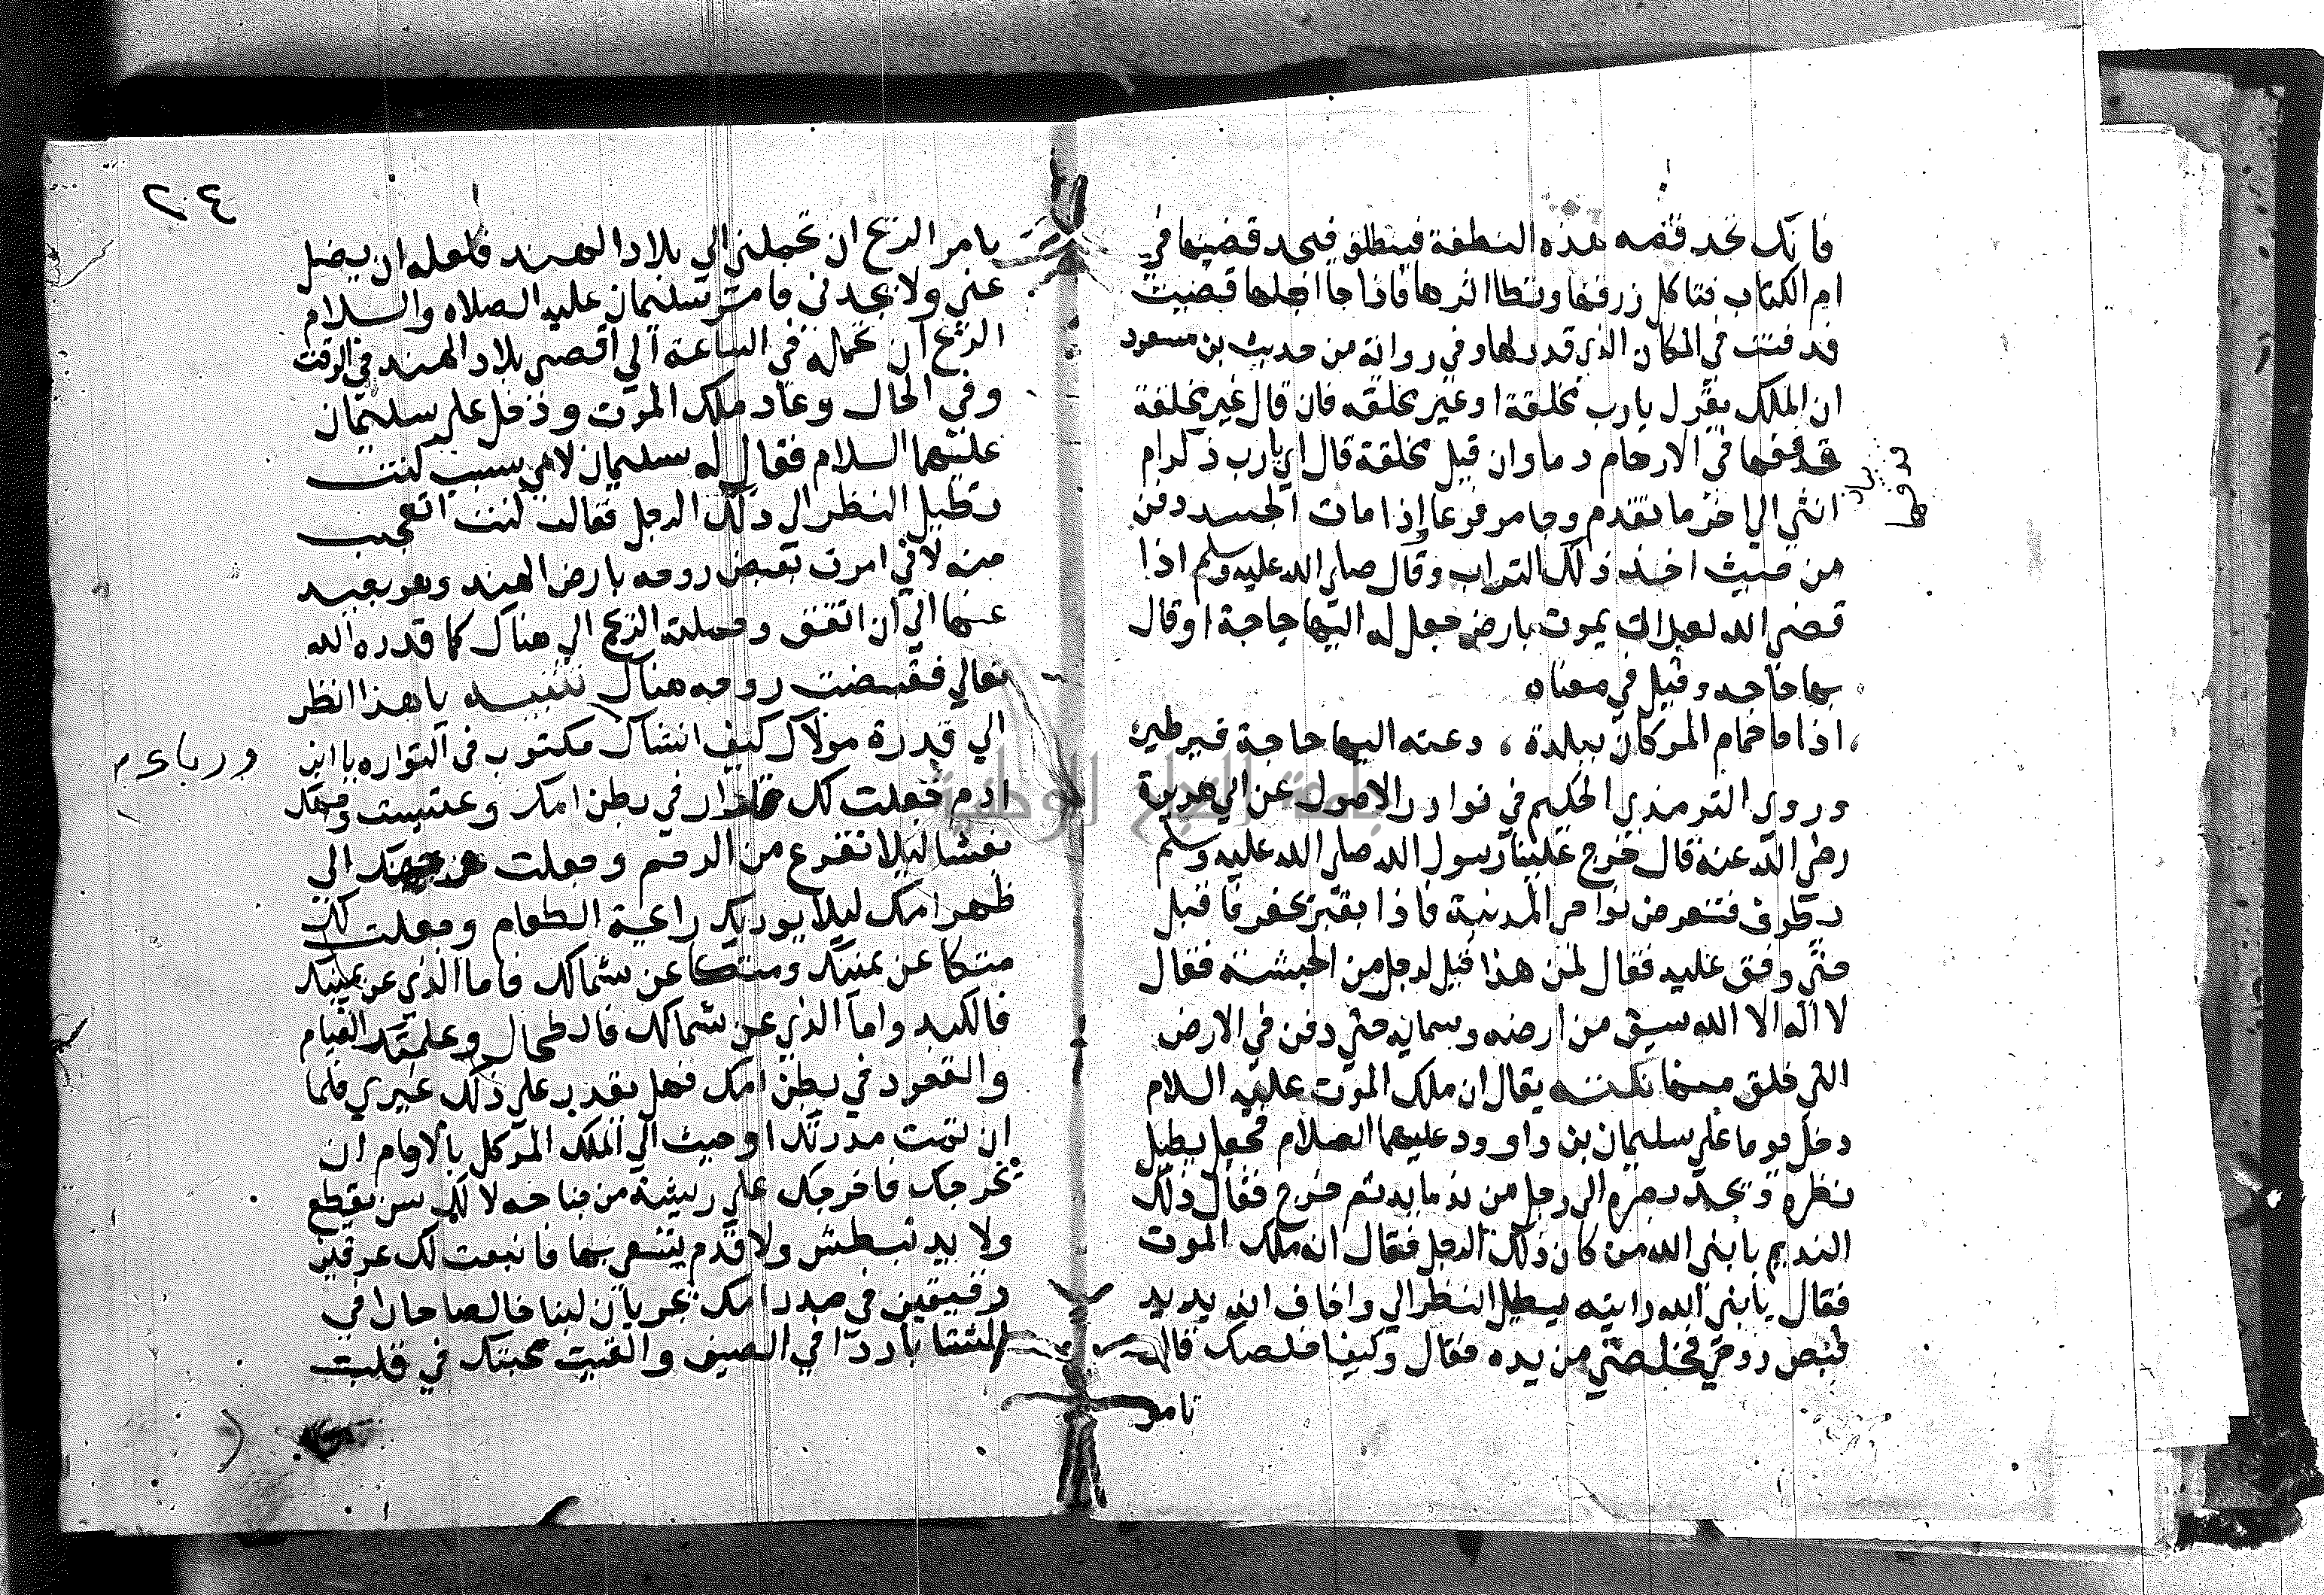 فانك تجد قصه هذه النطفة فينطلق فيجد قضيتها في
ام الكتاب فتاكل رزقها وتطا اثرها فاذا جا اجلها قبضت
فدفنت في المكان الذي قدر لها وفي رواية من حديث بن مسعود
ان الملك يقول يارب مخلقة او غير مخلقه فان قال غير مخلقة
قذفها في الارحام دما وان قيل مخلقة قال اي يارب ذكر ام
انثي الي اخر ما تقدم وجا مرفوعا اذا مات الجسد دفن
من حيث اخذ ذلك التراب وقال صلي الله عليه وسلم اذا
قضي الله لعبد ان يموت بارض جعل له اليها حاجة او قال
بها حاجه وقيل في معناه
اذا ما حمام المر كان ببلدة ، دعته اليها حاجة فيرطير
وروي الترمذي الحكيم في نوادر الاصول عن ابي هريرة
رضي الله عنه قال خرج علينا رسول الله صلي الله عليه وسلم
يطوف فتنعر من نواحي المدينة فاذا بقبر يحفر فاقبل
حتي وقف عليه فقال لمن هذا قيل لرجل من الحبشة فقال
لا اله الا الله سيق من ارضه وسمايه حتي دفن في الارض
التي خلق منها نكته يقال ان ملك الموت عليه السلام
دخل يوما علي سليمان بن داوود عليهما السلام فجعل يطيل
نظره ويحد بصره الي رجل من ندمايه ثم خرج فقال ذلك
النديم يا نبي الله من كان ذلك الرجل فقال انه ملك الموت
فقال يا نبي الله رايته يطيل النظر الي واخاف انه يريد
قبض روحي فخلصني من يده فقال وكيف اخلصك قال
تامر
يارب
رزقها
٢٤
تامر الريح ان تحملني الي بلاد الهند فلعله ان يضل
عني ولا يجدني فامر سليمان عليه الصلاه والسلام
الريح ان تحمله في الساعة الي اقصي بلاد الهند في الوقت
وفي الحال وعاد ملك الموت ودخل علي سليمان
عليهما السلام فقال له سليمان لاي سبب كنت
تطيل النظر الي ذلك الرجل فقالت كنت اتعجب
منه لاني امرت بقبض روحه بارض الهند وهو بعيد
عنها الي ان اتفق وحملته الريح الي هناك كما قدره الله
تعالي فقبضت روحه هناك تنبيه يا هذا انظر
الي قدرة مولاك كيف انشاك مكتوب في التواره يا ابن
ادم جعلت لك قرار في بطن امك وغشيت وجهك
بغشا ليلا تفزع من الرحم وجعلت وجهك الي
ظهر امك ليلا يوذيك رايحة الطعام وجعلت لك
متكا عن يمينك ومتكا عن شمالك فاما الذي عن يمينك
فالكبد واما الذي عن شمالك فالطحال وعلمتك القيام
والقعود في بطن امك فهل يقدر علي ذلك غيري فلما
ان تمت مدتك اوحيت الي الملك الموكل بالارحام ان
يخرجك فاخرجك علي ريشة من جناحه لا لك سن يقطع
ولا يد تبطش ولا قدم يتسعي بها فانبعت لك عرقين
رقيقين في صدر امك يجريان لبنا خالصا حارا في
الشتا باردا في الصيف والقيت محبتك في قلب